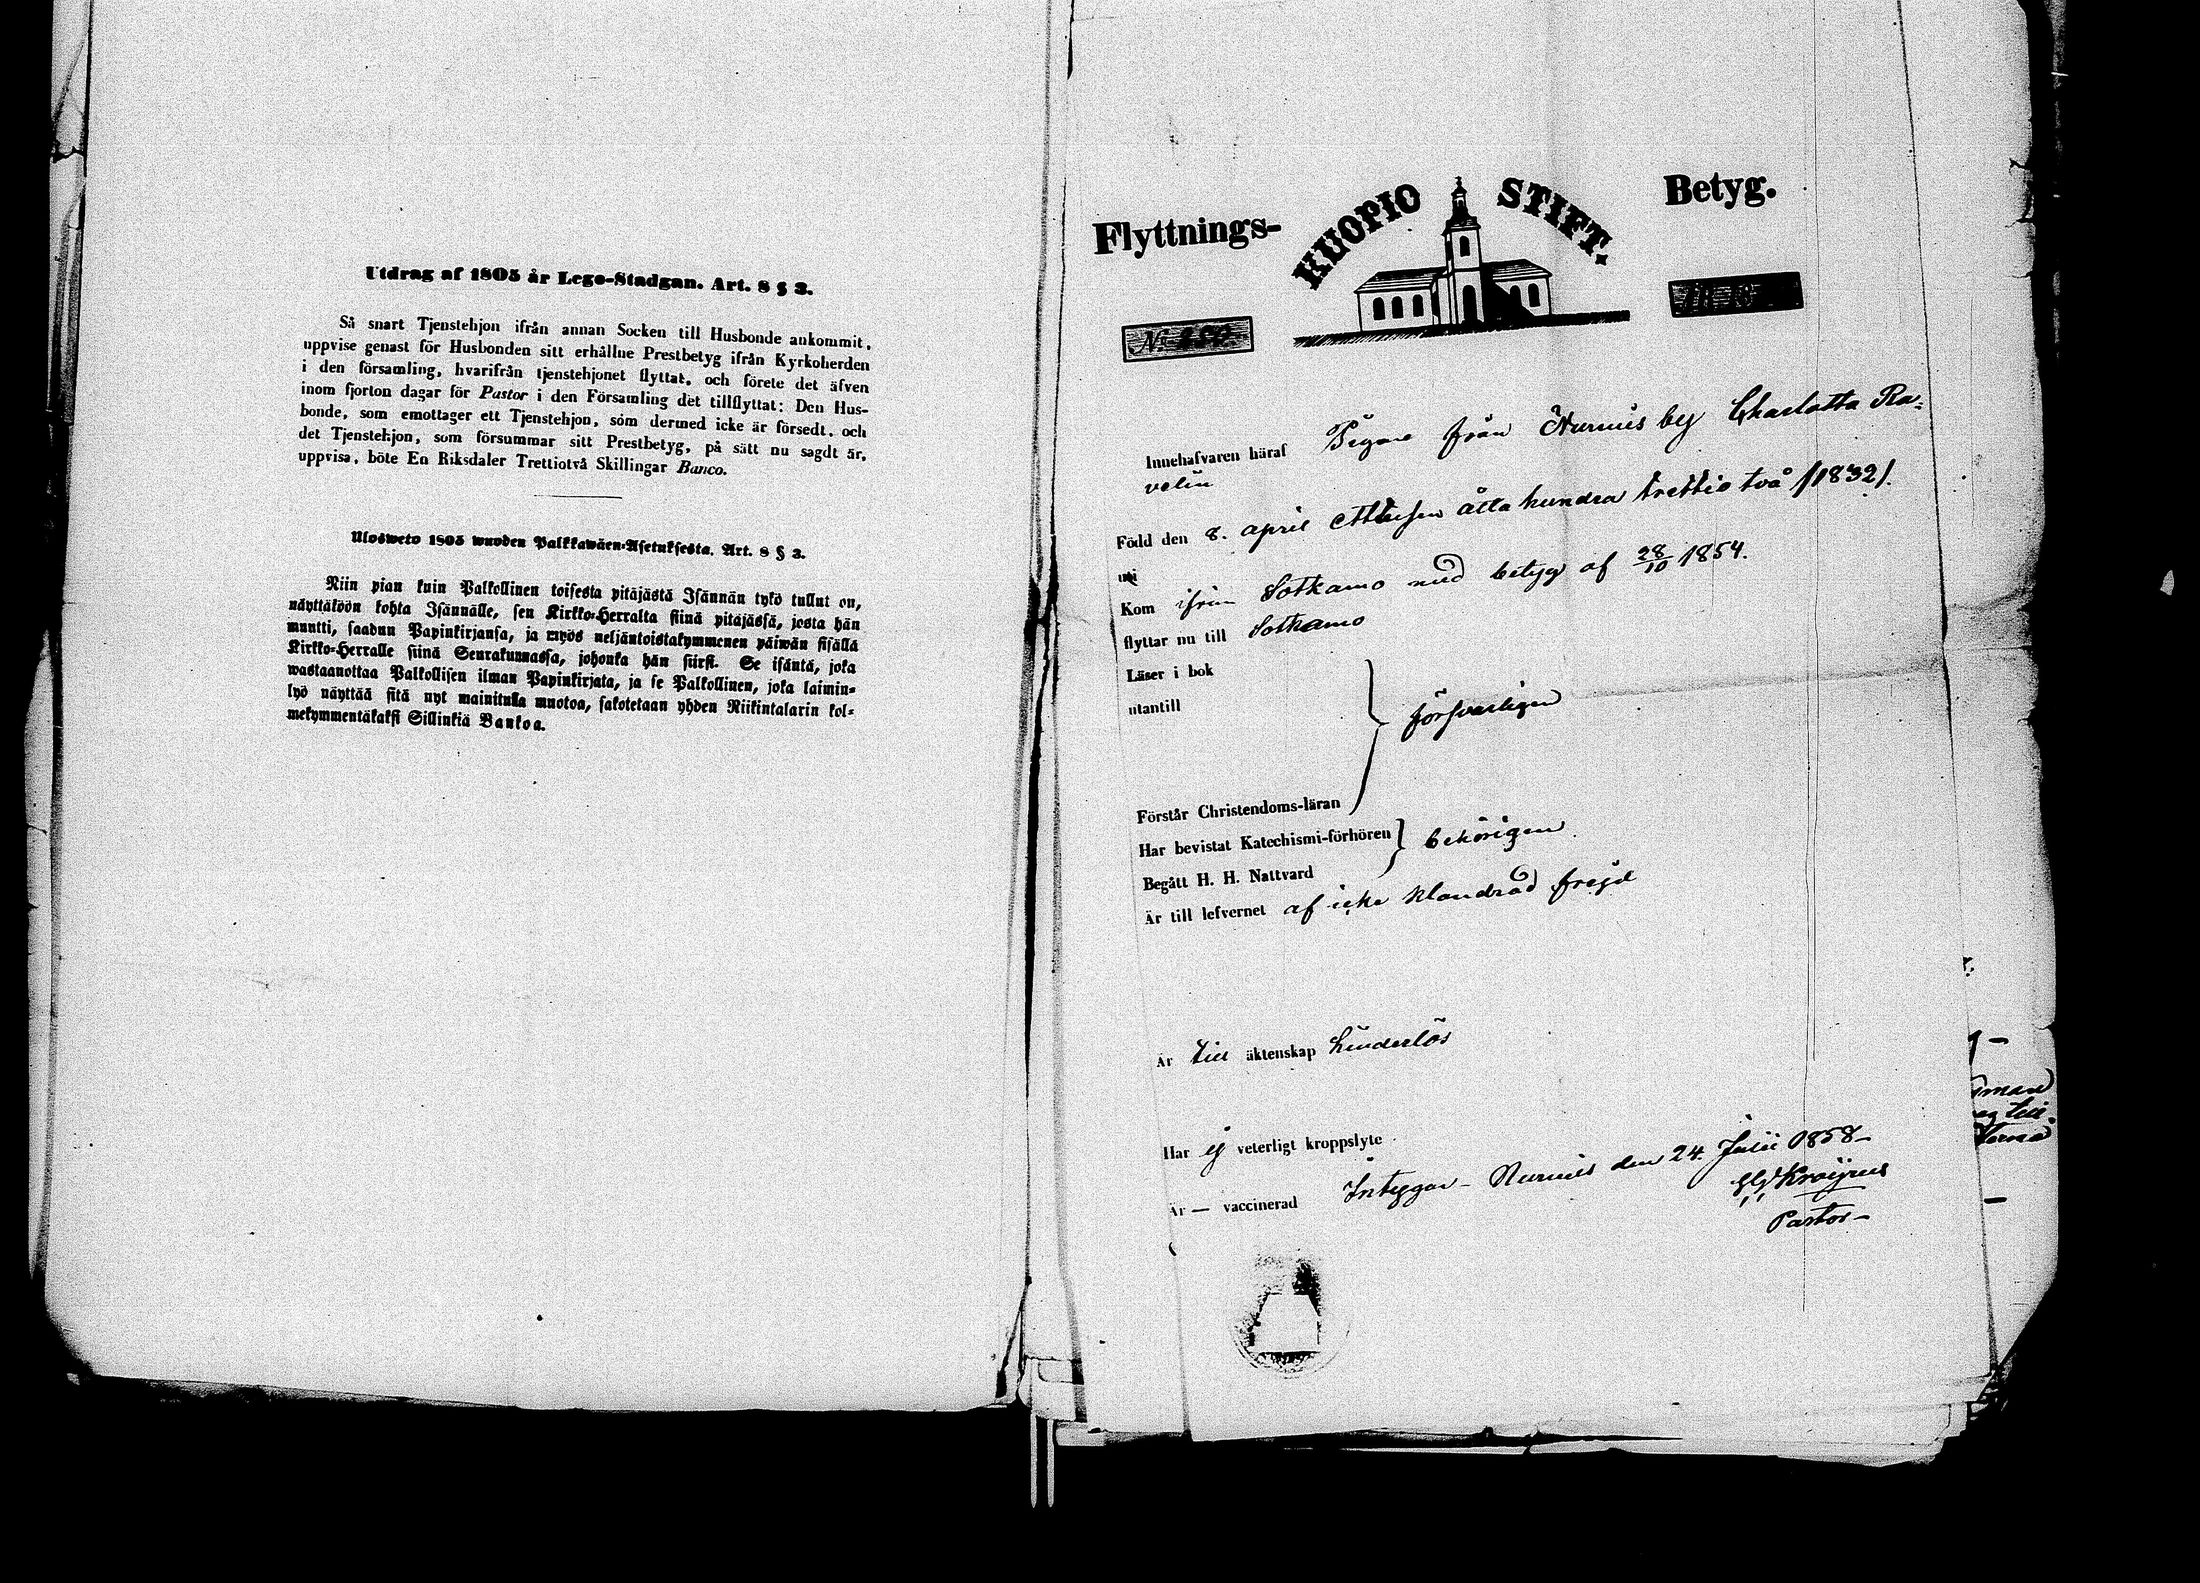 Utdrag af 1805 år Lego-Stadgan. Art. 8 § 3.
Så snart Tjenstehjon ifrån annan Socken till Husbonde ankommit,
uppvise genast för Husbonden sitt erhållne Prestbetyg ifrån Kyrkoherden
i den församling, hvarifrån tjenstehjonet flyttat, och förete det äfven
inom fjorton dagar för Pastor i den Församling det tillflyttat: Den Hus-
bonde, som emottager ett Tjenstehjon, som dermed icke är försedt, och
det Tjenstehjon, som försummar sitt Prestbetyg, på sätt nu sagdt är,
uppvisa, böte En Riksdaler Trettiotvå Skillingar Banco.
Ulosweto 1805 wuoden Palkkawäen-Asetuksesta. Art. 8 § 3.
Niin pian kuin Palkollinen toisesta pitäjästä Isännän tykö tullut on,
näyttäköön kohta Isännälle, sen Kirkko-Herralta siinä pitäjässä, josta hän
muutti, saadun Papinkirjansa, ja myös neljäntoistakymmenen päiwän sisällä
Kirkko-Herralle siinä Seurakunnassa, johonka hän siirsi. Se isäntä, joka
wastaanottaa Palkollisen ilman Papinkirjata, ja se Palkollinen, joka laimin-
lyö näyttää sitä nyt mainitulla muotoa, sakotetaan yhden Riikintalarin kol-
mekymmentäkaksi Sillinkiä Bankoa.
Flyttnings- KUOPIO STIFT. Betyg.
N:o
Innehafvaren häraf Pigan från Nurmis by Charlotta Ra-
velin
Född den 8. april Ettusen åtta hundra trettio två /1832/.
uti
Kom ifrån Sotkamo med betyg af 28/10 1854.
flyttar nu till Sotkamo
Läser i bok
utantill
försvarligen
Förstår Christendoms-läran
Har bevistat Katechismi-förhören
behörigen
Begått H. H. Nattvard
Är till lefvernet af icke klandrad frejd
Är till äktenskap hinderlös
Har ej veterligt kroppslyte
Är — vaccinerad Intygar - Nurmis den 24. Julii 1858-
Pastor-